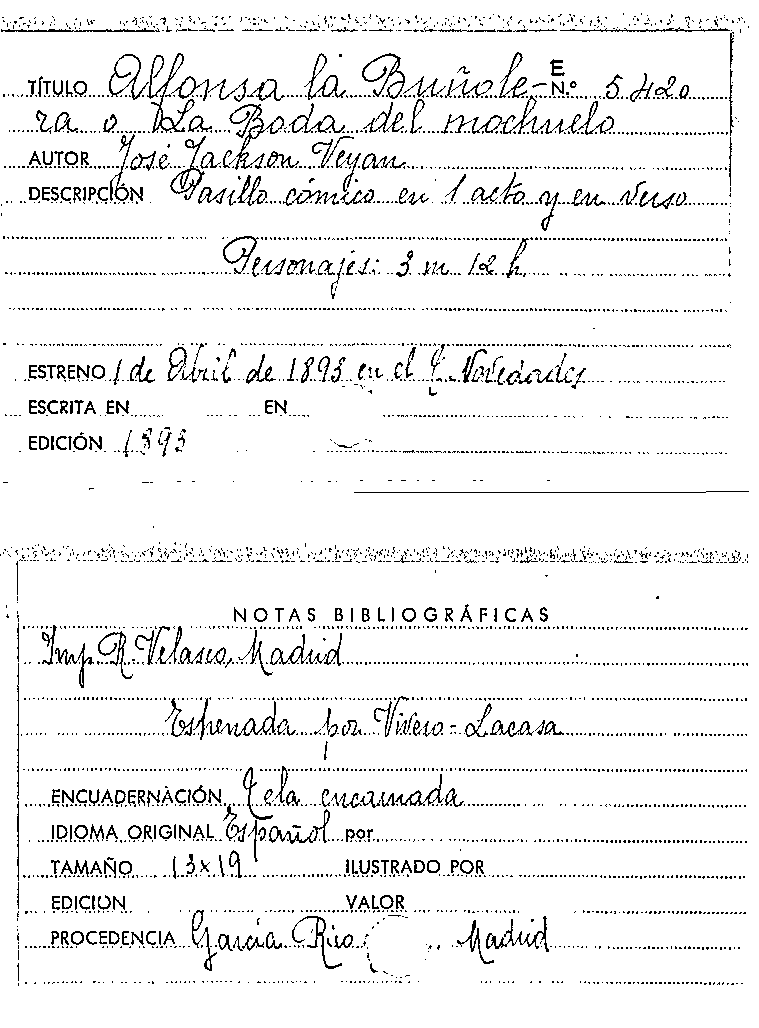 TÍTULO Alfonsa la Buñole- E N.º 5420
ra o La Boda del mochuelo
AUTOR José Jackson Veyan
DESCRIPCIÓN Pasillo cómico en 1 acto y en verso
Personajes: 3 m 12 h.
ESTRENO 1 de Abril de 1893 en el T. Novedades
ESCRITA EN EN
EDICIÓN 1893
NOTAS BIBLIOGRÁFICAS
Imp. R. Velasco, Madrid
Estrenada por Vivero-Lacasa
ENCUADERNACIÓN Tela encarnada
IDIOMA ORIGINAL Español por
TAMAÑO 13x19 ILUSTRADO POR
EDICION VALOR
PROCEDENCIA García Rico Madrid